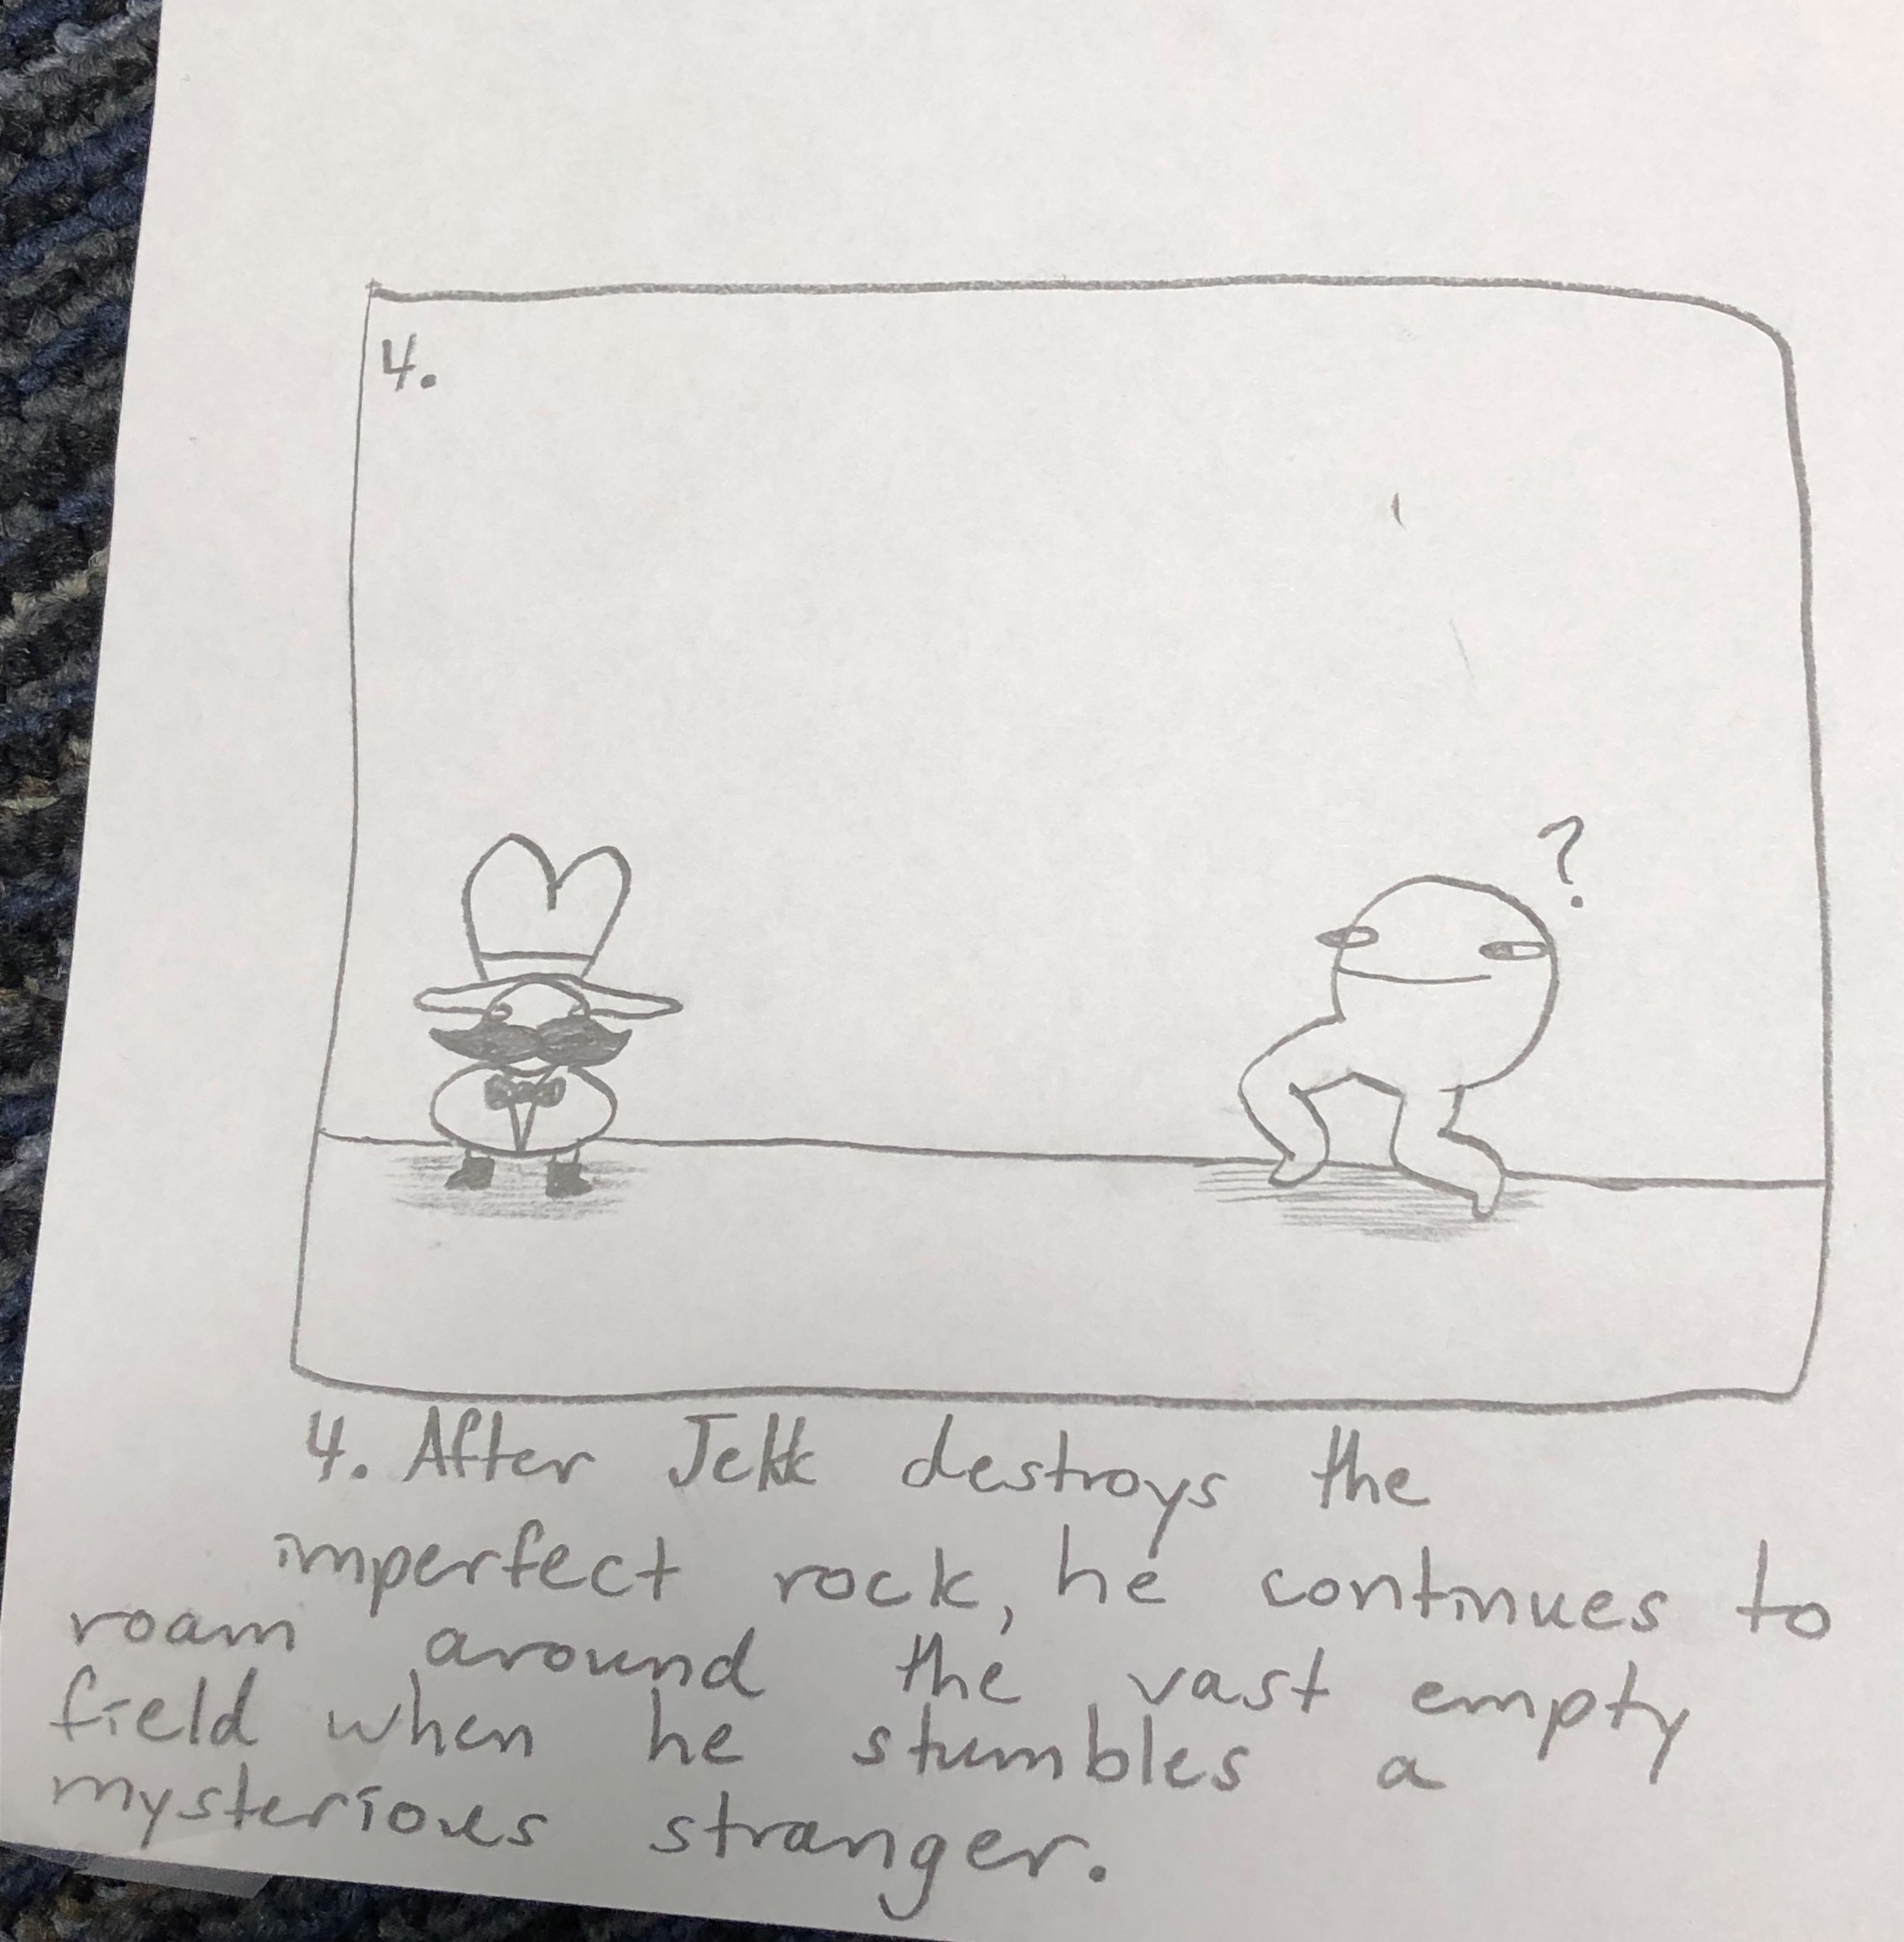 4.
?
4. After Jekk destroys the
imperfect rock, he continues to
roam around the vast empty
field when he stumbles a
mysterious stranger.